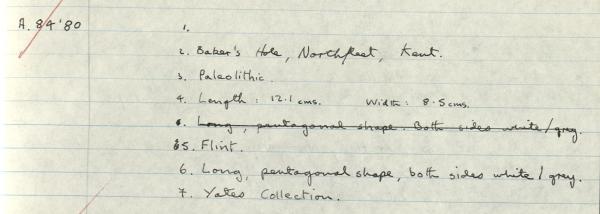 A. 84'80
1.
2. Baker's Hole, Northfleet, Kent.
3. Paleolithic.
4. Length: 12.1 cms. Width: 8.5 cms.
6. Long, pentagonal shape. Both sides white/grey.
5. Flint.
6. Long, pentagonal shape, both sides white/grey.
7. Yates Collection.